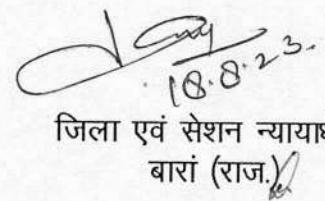 18.8.23.
जिला एवं सेशन न्यायाध
बारां (राज.)